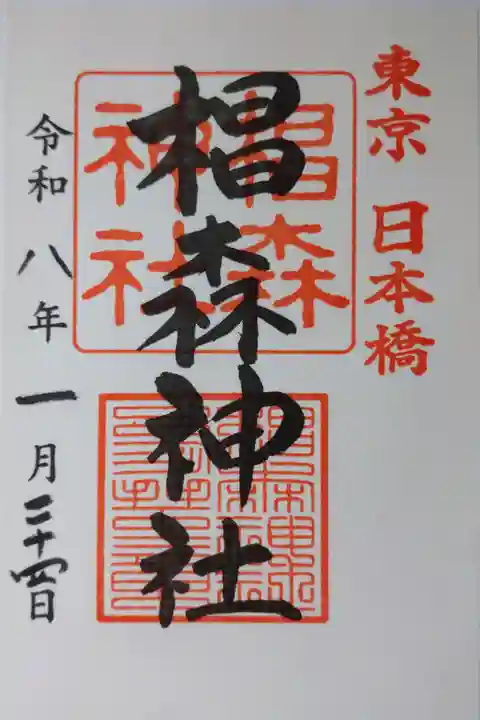 東京 日本橋
椙森神社
椙森
神社
令和八年一月二十四日